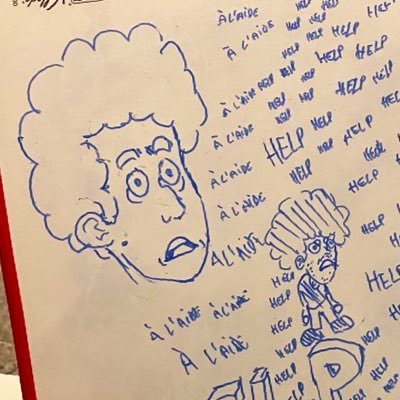 À L'AIDE HELP HELP HELP
À L'AIDE HELP HELP HELP
HELP HELP HELP HELP
À L'AIDE HELP HELP HELP HELP HELP
À L'AIDE HELP HELP HELP HELP
HELP HELP HELP HELP
À L'AIDE HELP
À L'AIDE HELP
À L'AIDE HELP
HELP
À L'AIDE À L'AIDE HELP HELP
À L'AIDE HELP HELP
HELP
HELP